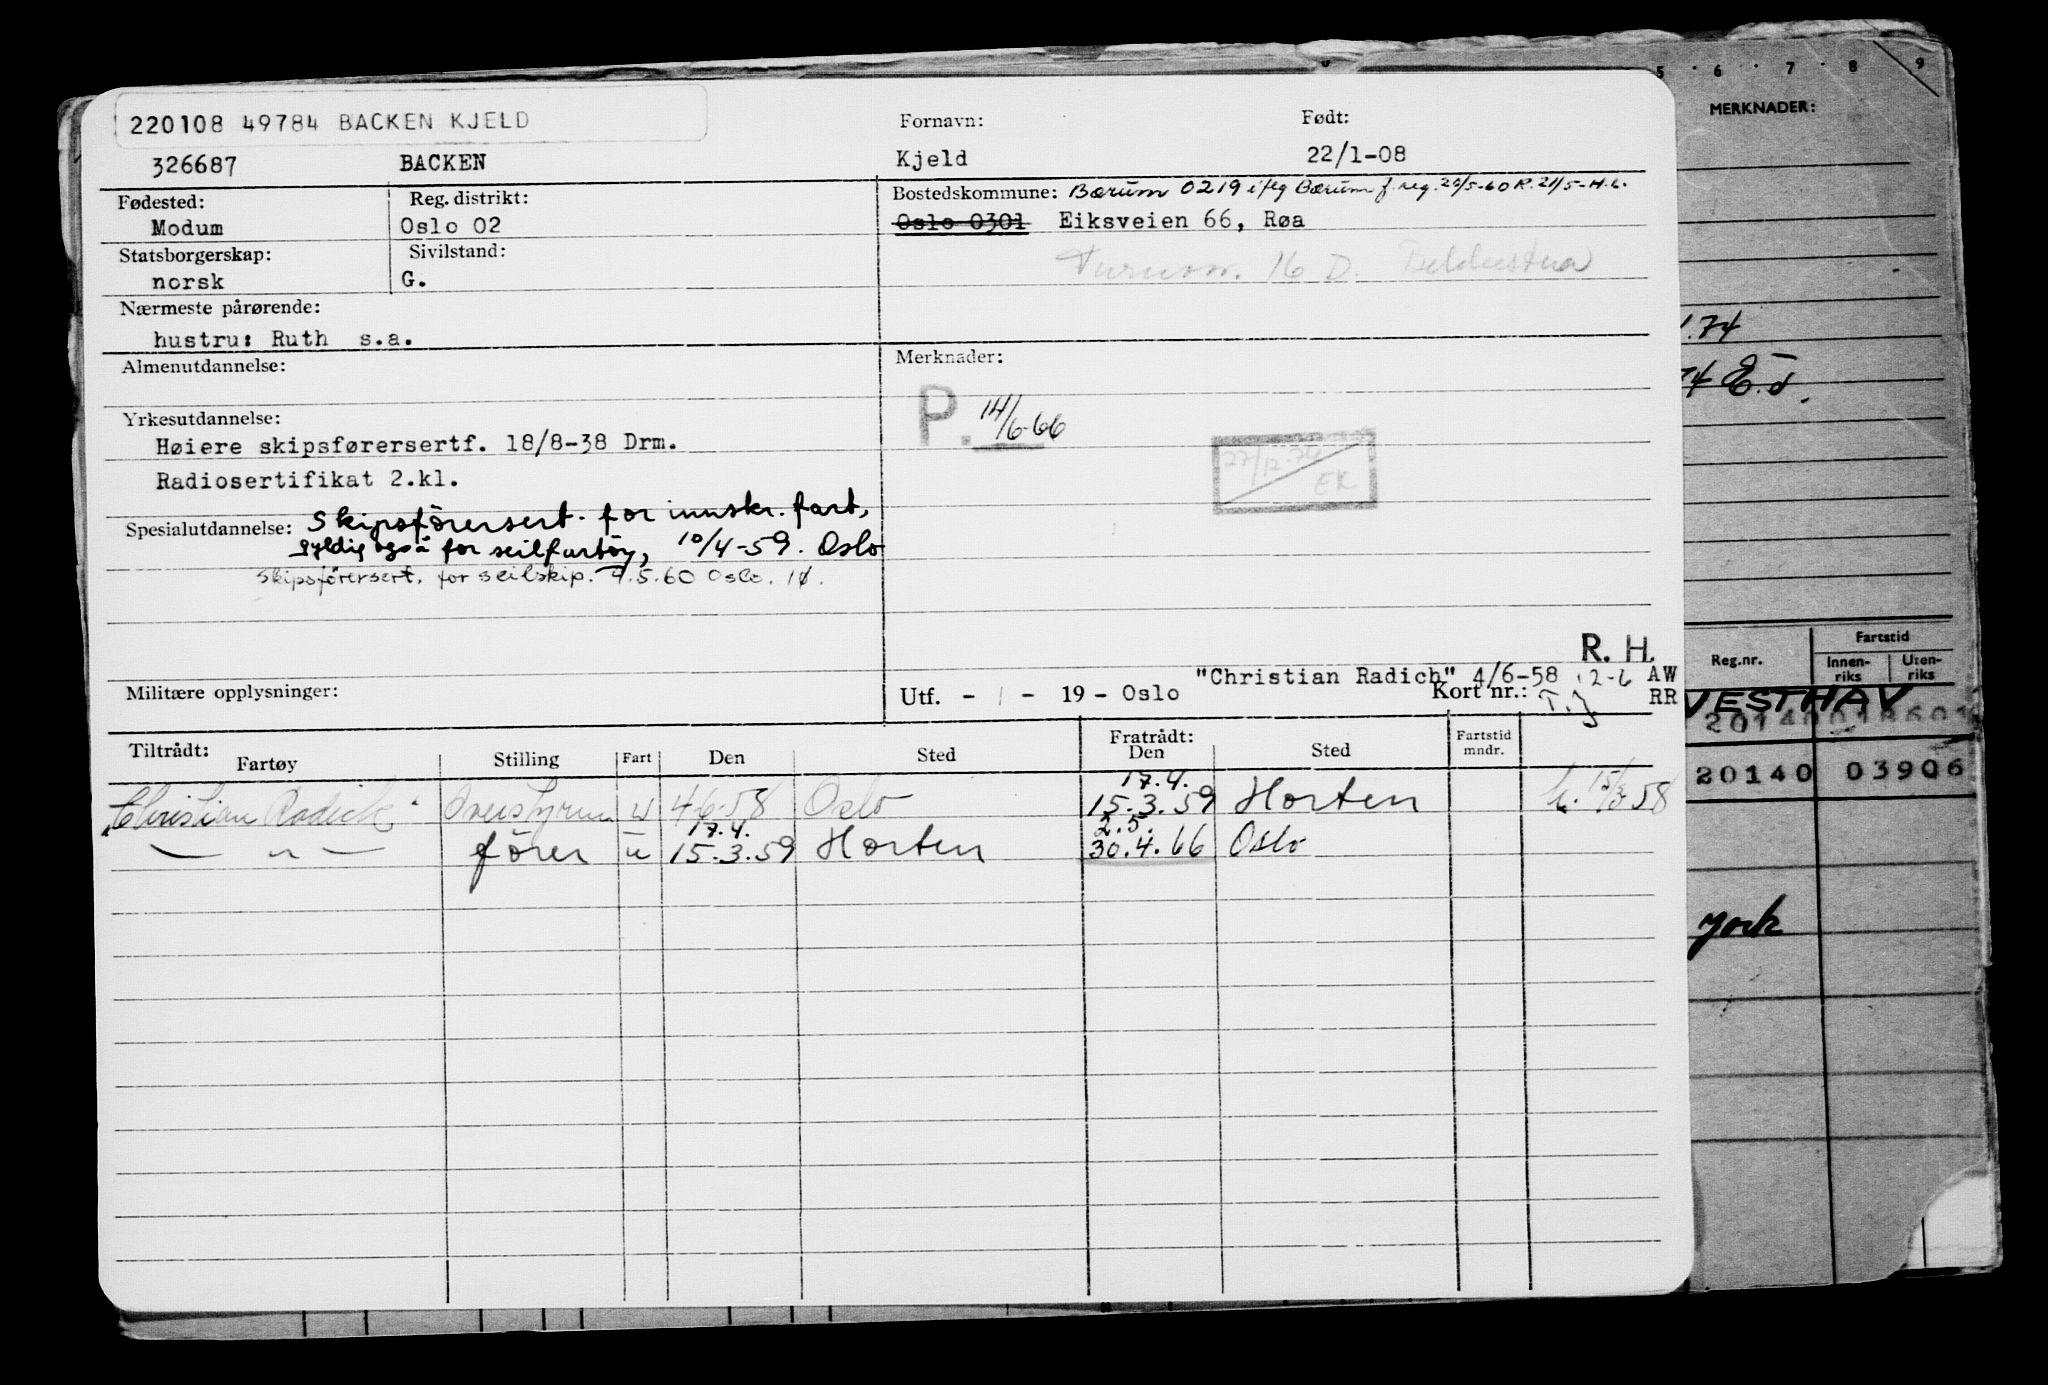 220108 49784 BACKEN KJELD
Fornavn:
Født:
326687 BACKEN Kjeld 22/1-08
Fødested:
Reg. distrikt:
Bostedskommune: Bærum 0219 iflg Bærum f.reg. 20/5-60 R. 21/5- H.L.
Modum Oslo 02 Oslo 0301 Eiksveien 66, Røa
Statsborgerskap:
Sivilstand:
16 D.
norsk G.
Nærmeste pårørende:
hustru: Ruth s.a.
Almenutdannelse:
Merknader:
P. 14/6-66
Yrkesutdannelse:
Høiere skipsførersertf. 18/8-38 Drm.
27/12-74
EK
Radiosertifikat 2.kl.
Spesialutdannelse: Skipsförersert. for innskr. fart,
gyldig også for seilfartøy, 10/4-59. Oslo
Skipsförersert. for seilskip. 4.5.60 Oslo.
R. H.
"Christian Radich" 4/6-58 12-6 AW
Militære opplysninger:
Utf. - / - 19 - Oslo Kort nr.: T.J RR
Tiltrådt:
Fartøy Stilling Fart Den Sted
Fratrådt:
Den Sted
Fartstid
mndr.
17.4.
"Christian Radich" Overstyrm u 4-6-58 Oslo 15.3.59 Horten 15/3 58
17.4. 2.5.
— " — förer u 15.3.59 Horten 30.4.66 Oslo
5 6 7 8 9
MERKNADER:
.74
74 E.d.
Reg.nr.
Fartstid
Innen-
riks
Uten-
riks
VESTHAV
20140
20140 03906
York